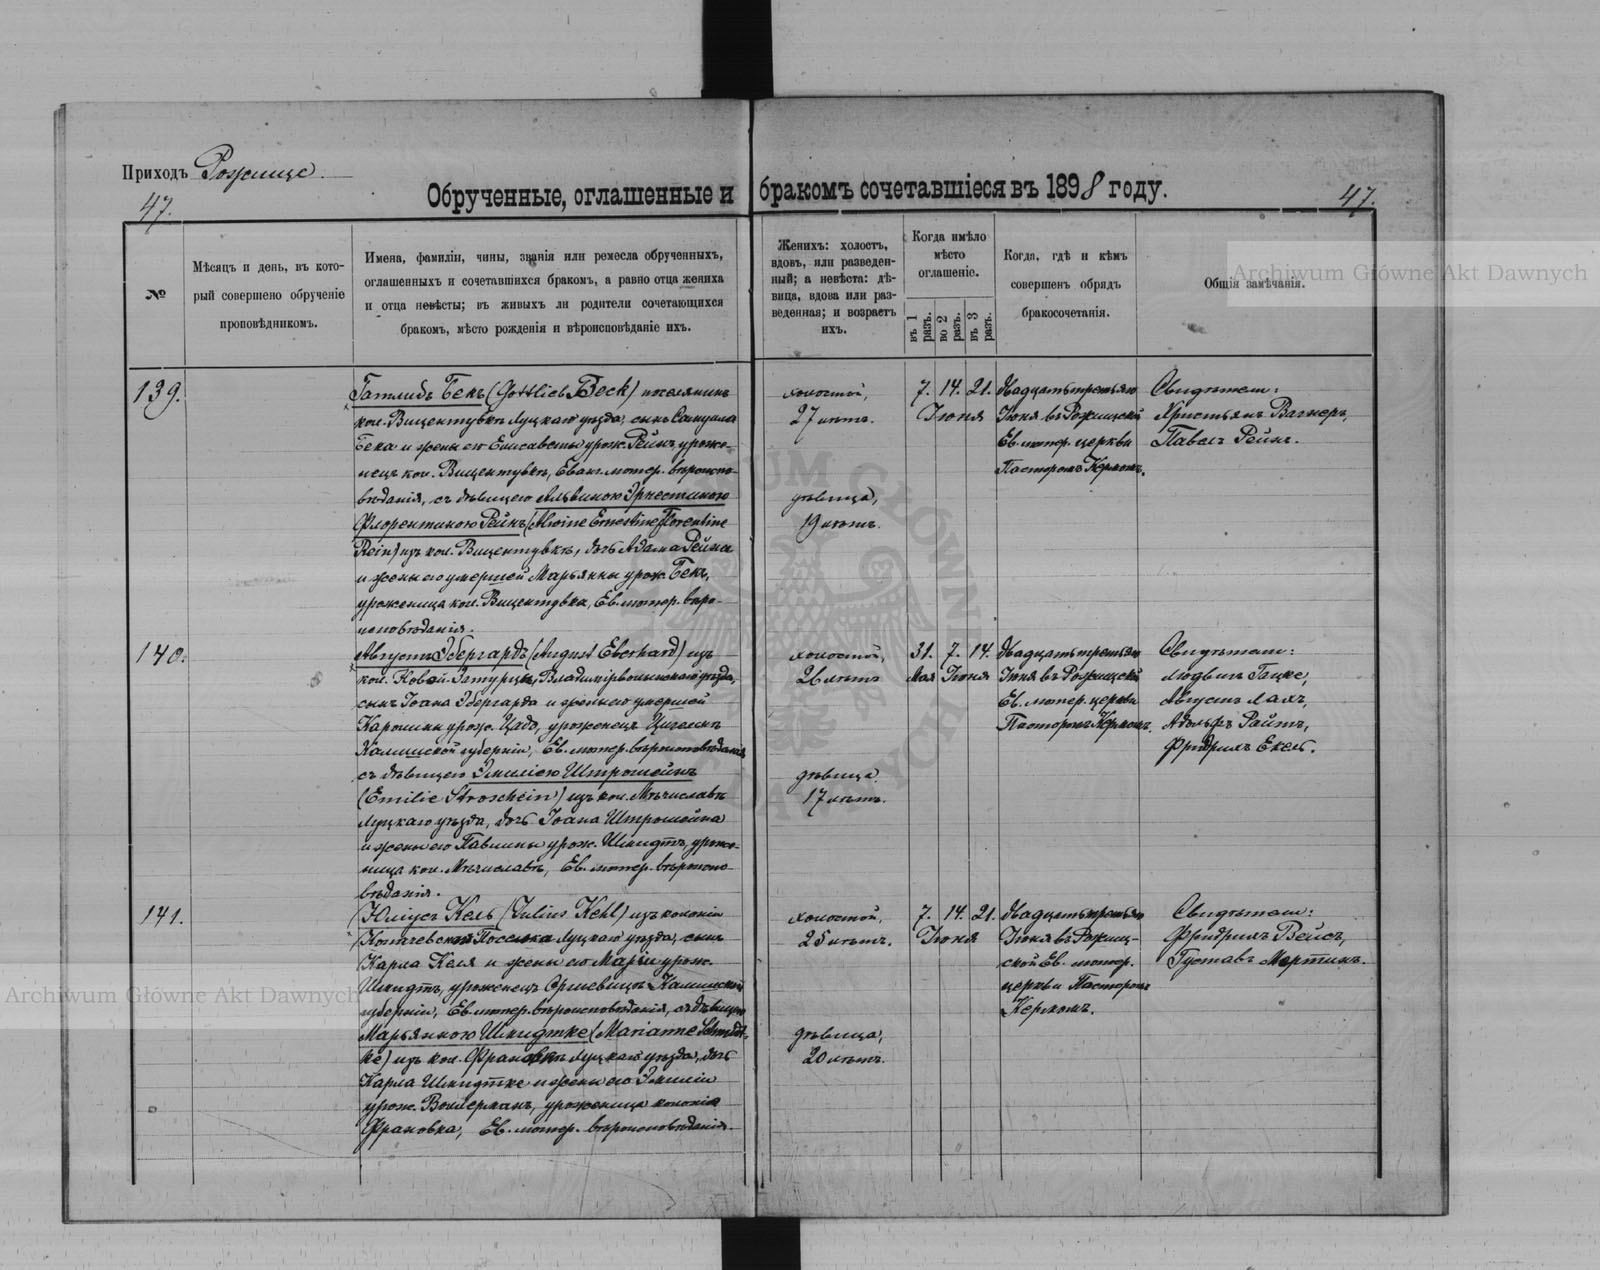 Приходъ Рожище.
47.
Обрученные, оглашенные и бракомъ сочетавшіеся въ 1898 году.
47.
№
Мѣсяцъ и день, въ кото-
рый совершено обрученіе
проповѣдникомъ.
Имена, фамиліи, чины, званія или ремесла обрученныхъ,
оглашенныхъ и сочетавшихся бракомъ, а равно отца жениха
и отца невѣсты; въ живыхъ ли родители сочетающихся
бракомъ, мѣсто рожденія и вѣроисповѣданіе ихъ.
Женихъ: холостъ,
вдовъ, или разведен-
ный; а невѣста: дѣ-
вица, вдова или раз-
веденная; и возрастъ
ихъ.
Когда имѣло
мѣсто
оглашеніе.
въ 1 разъ.
во 2 разъ.
въ 3 разъ.
Когда, гдѣ и кѣмъ
совершенъ обрядъ
бракосочетанія.
Общія замѣчанія.
Archiwum Główne Akt Dawnych
139.
Готлибъ Бекъ (Gottlieb Beck) поселянинъ
кол. Вицентувкѣ Луцкаго уѣзда, сынъ Самуила
Бека и жены его Елисаветы урож. Рейнъ, уроже-
нецъ кол. Вицентувкѣ, Еван. лютер. вѣроиспо-
вѣданія, съ дѣвицею Альвиною Эрнестиною
Флорентиною Рейнъ (Alwine Ernestine Florentine
Rein) изъ кол. Вицентувкѣ, дочь Адама Рейна
и жены его умершей Марьянны урож. Бекъ,
уроженица кол. Вицентувка, Ев. лютер. вѣро-
исповѣданія.
холостой,
27 лѣтъ.
дѣвица,
19 лѣтъ.
7. 14. 21.
Іюня
Двадцать третьяго
Іюня въ Рожищской
Ев. лютер. церкви
Пасторомъ Кермомъ.
Свидѣтели:
Христьянъ Вагнеръ,
Павелъ Рейнъ.
140.
Августъ Эбергардъ (August Eberhard) изъ
кол. Новой Затурцы, Владимірволынскаго уѣзда,
сынъ Іоана Эбергарда и жены его умершей
Каролины урож. Цадо, уроженецъ
Калишской губерніи, Ев. лютер. вѣроисповѣданія
съ дѣвицею Эмиліею Штрошейнъ
(Emilie Stroschein) изъ кол. Мѣчиславкѣ
Луцкаго уѣзда, дочь Іоана Штрошейна
и жены его Павлины урож. Шмидтъ, уроже-
ница кол. Мѣчиславкѣ, Ев. лютер. вѣроиспо-
вѣданія.
холостой,
26 лѣтъ
дѣвица
17 лѣтъ.
31. 7. 14.
Мая Іюня
Двадцать третьяго
Іюня въ Рожищской
Ев. лютер. церкви
Пасторомъ Кермомъ.
Свидѣтели:
Людвигъ Гацке,
Августъ Лахъ,
Адольфъ Райтъ,
Фридрихъ Екель.
141.
Юліусъ Кель (Julius Kehl) изъ колоніи
Копачевской Посѣлка Луцкаго уѣзда, сынъ
Карла Келя и жены его Маріи урож.
Шмидтъ, уроженецъ Калишской
губерніи, Ев. лютер. вѣроисповѣданія, съ дѣвицею
Марьянною Шмидтке (Marianne Schmidt-
ke) изъ кол. Франовкѣ Луцкаго уѣзда, дочь
Карла Шмидтке и жены его Эмиліи
урож. Воллерманъ, уроженица колоніи
Франовка, Ев. лютер. вѣроисповѣданія.
холостой,
25 лѣтъ.
дѣвица,
20 лѣтъ.
7. 14. 21.
Іюня
Двадцать третьяго
Іюня въ Рожищ-
ской Ев. лютер.
церкви Пасторомъ
Кермомъ.
Свидѣтели:
Фридрихъ Вейсъ,
Густавъ Мартинъ.
Archiwum Główne Akt Dawnych